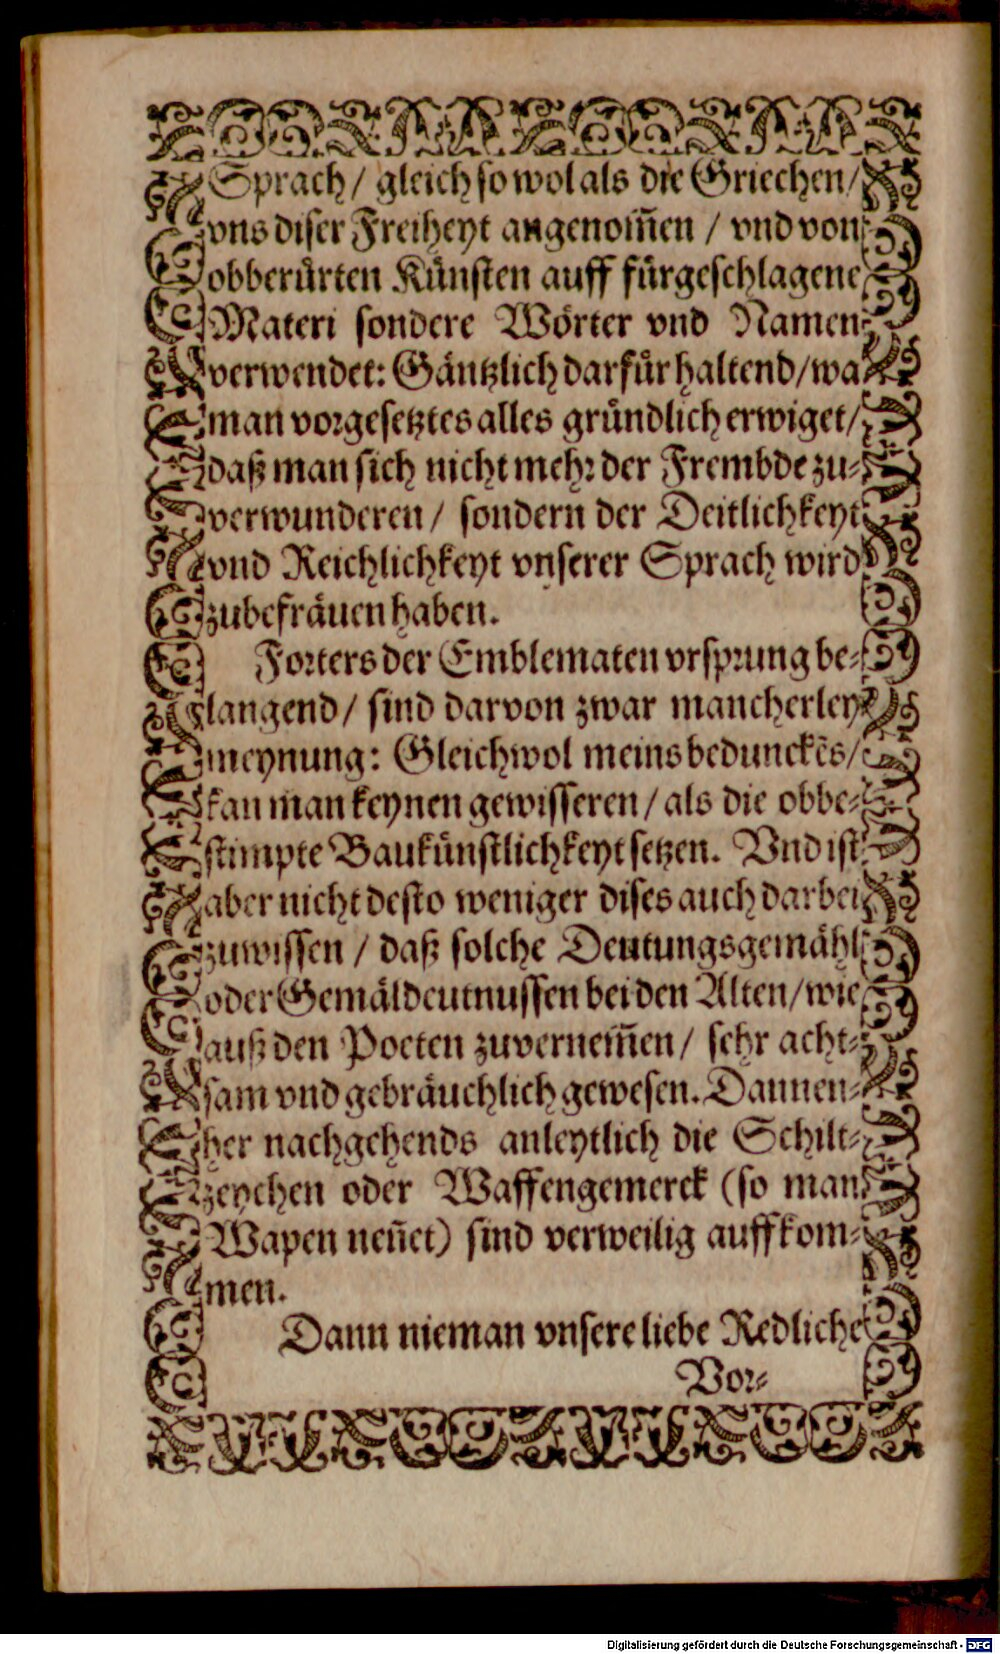 Sprach / gleich so wol als die Griechen /
vns diser Freiheyt angenom̃en / vnd von
obberuͤrten Kuͤnsten auff fuͤrgeschlagene
Materi sondere Woͤrter vnd Namen
verwendet: Gaͤntzlich darfuͤr haltend / wa
man vorgesetztes alles gruͤndlich erwiget /
daß man sich nicht mehr der Frembde zu-
verwunderen / sondern der Deitlichkeyt
vnd Reichlichkeyt vnserer Sprach wird
zubefraͤuen haben.
Forters der Emblematen vrsprung be-
langend / sind darvon zwar mancherley
meynung: Gleichwol meins bedunckẽs /
kan man keynen gewisseren / als die obbe-
stimpte Baukuͤnstlichkeyt setzen. Vnd ist
aber nicht desto weniger dises auch darbei
zuwissen / daß solche Deutungsgemaͤhl
oder Gemaͤldeutnussen bei den Alten / wie
auß den Poeten zuvernem̃en / sehr acht-
sam vnd gebraͤuchlich gewesen. Dannen-
her nachgehends anleytlich die Schilt-
zeychen oder Waffengemerck (so man
Wapen neñet) sind verweilig auffkom-
men.
Dann nieman vnsere liebe Redliche
Vor-
Digitalisierung gefördert durch die Deutsche Forschungsgemeinschaft - DFG